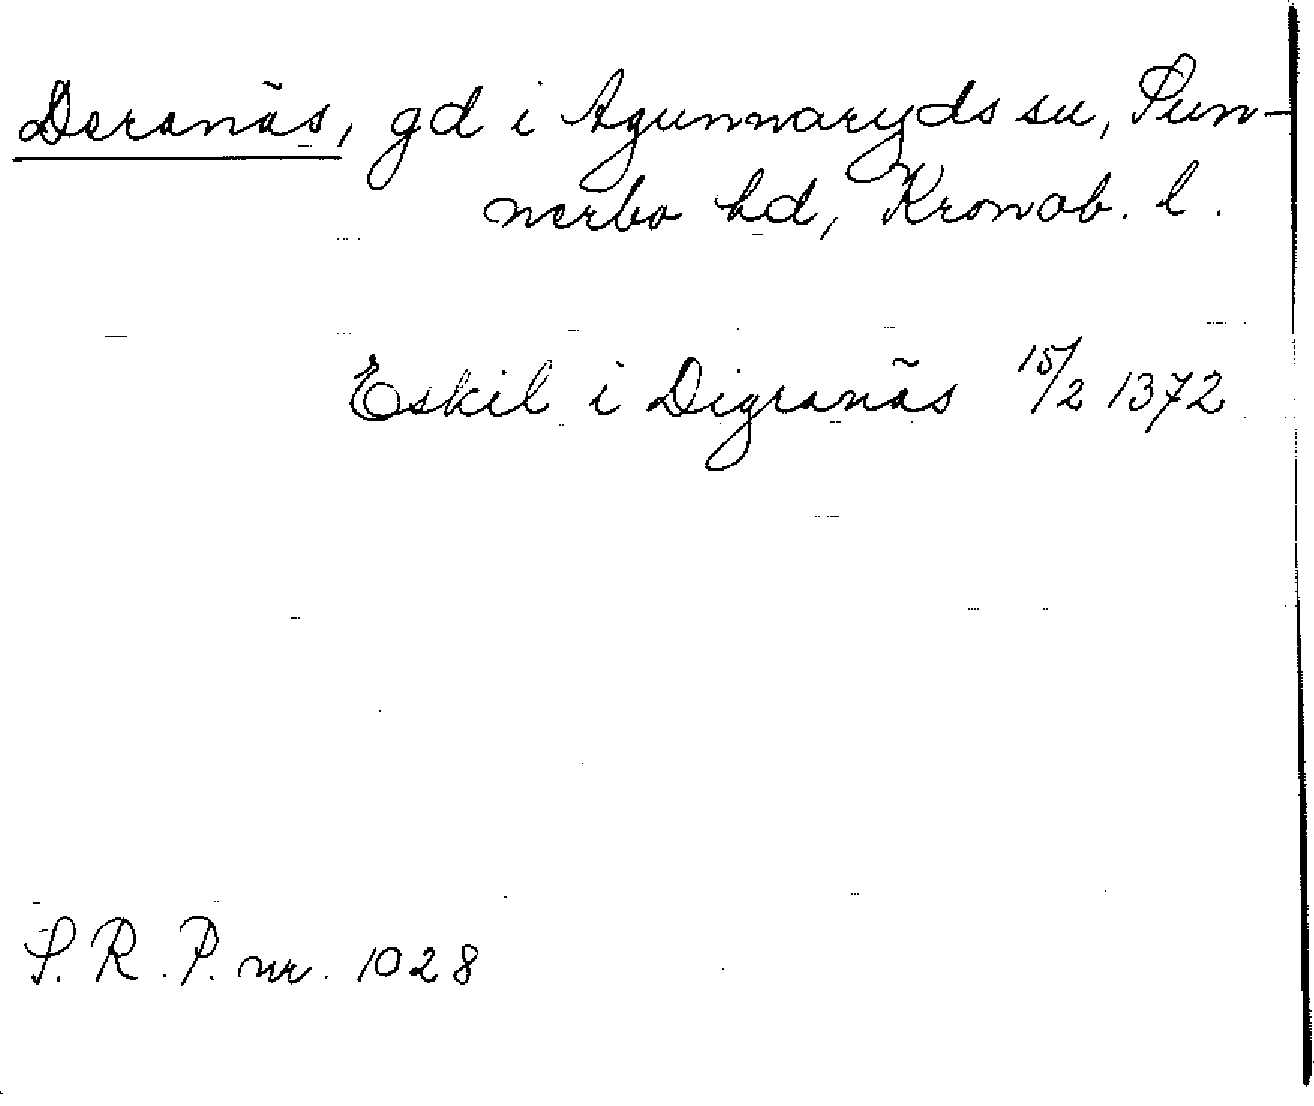 Deranäs, gd i Agunnaryds sn, Sun-
nerbo hd, Kronob. l.
Eskil i Digranäs 15/2 1372
S. R. P. nr. 1028